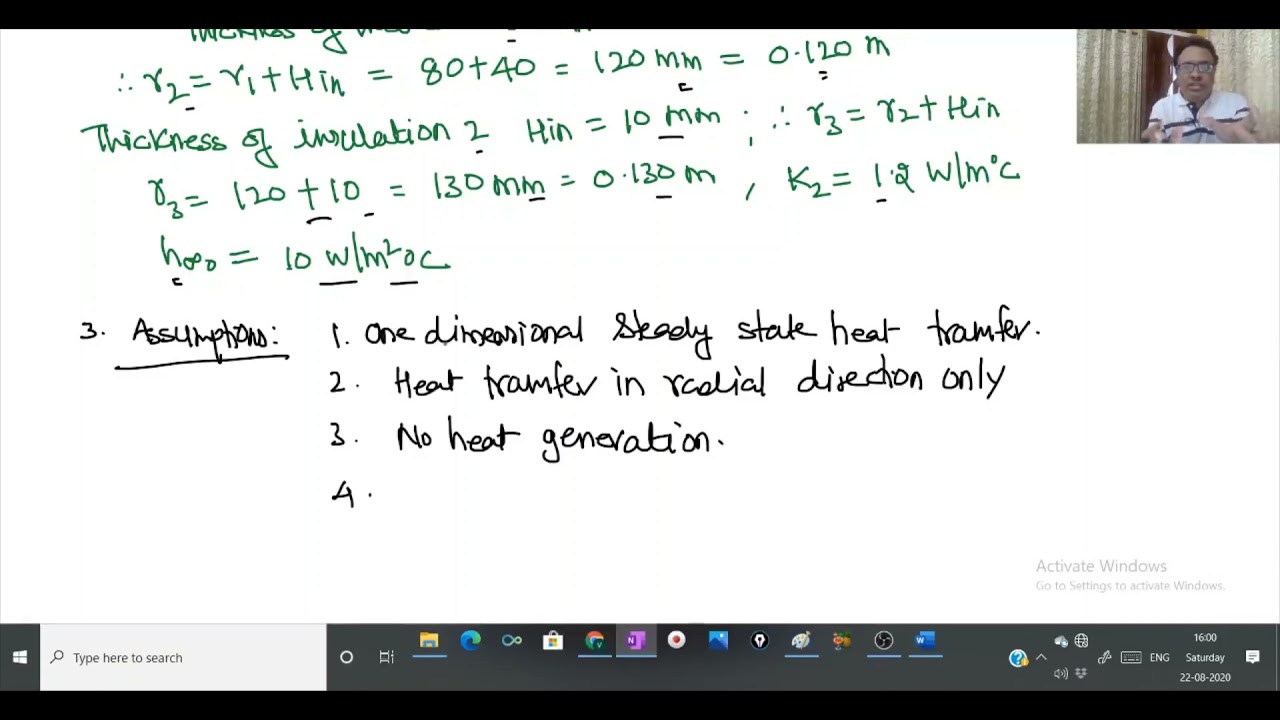 Thickness of
∴ r₂ = r₁ + Hin = 80+40 = 120 mm = 0.120 m
Thickness of insulation 2 Hin = 10 mm ; ∴ r₃ = r₂ + Hin
r₃ = 120 + 10 = 130 mm = 0.130 m , K₂ = 1.2 W/m°C
h∞₀ = 10 W/m²°C
3. Assumptions: 1. One dimensional steady state heat transfer.
2. Heat transfer in radial direction only
3. No heat generation.
4.
Activate Windows
Go to Settings to activate Windows.
Type here to search
ENG
16:00
Saturday
22-08-2020